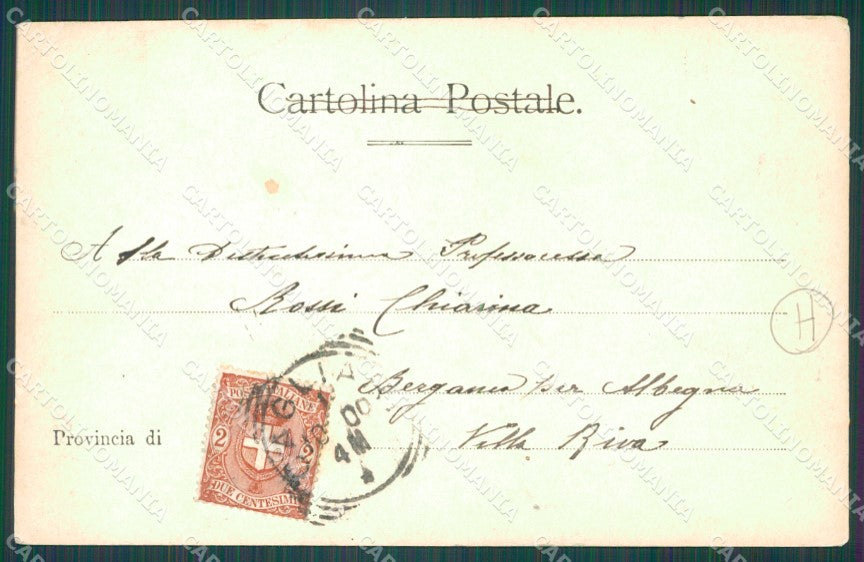 Cartolina Postale.
Alla Distintissima Professoressa
Rossi Chiarina
Bergamo per Albegna
Villa Riva
Provincia di
POSTE ITALIANE
2 2
DUE CENTESIMI
00
4 M
H
CARTOLINOMANIA